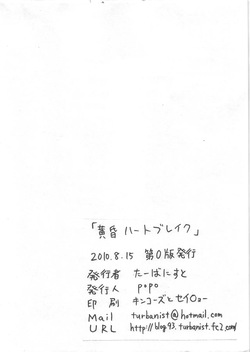 「黄昏ハートブレイク」
2010.8.15 第0版発行
発行者 たーばにすと
発行人 popo
印刷 キンコーズとセイロョー
Mail turbanist@hotmail.com
URL http://blog93.turbanist.fc2.com/